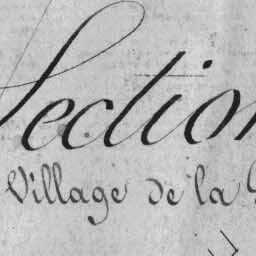 Section
Village de la